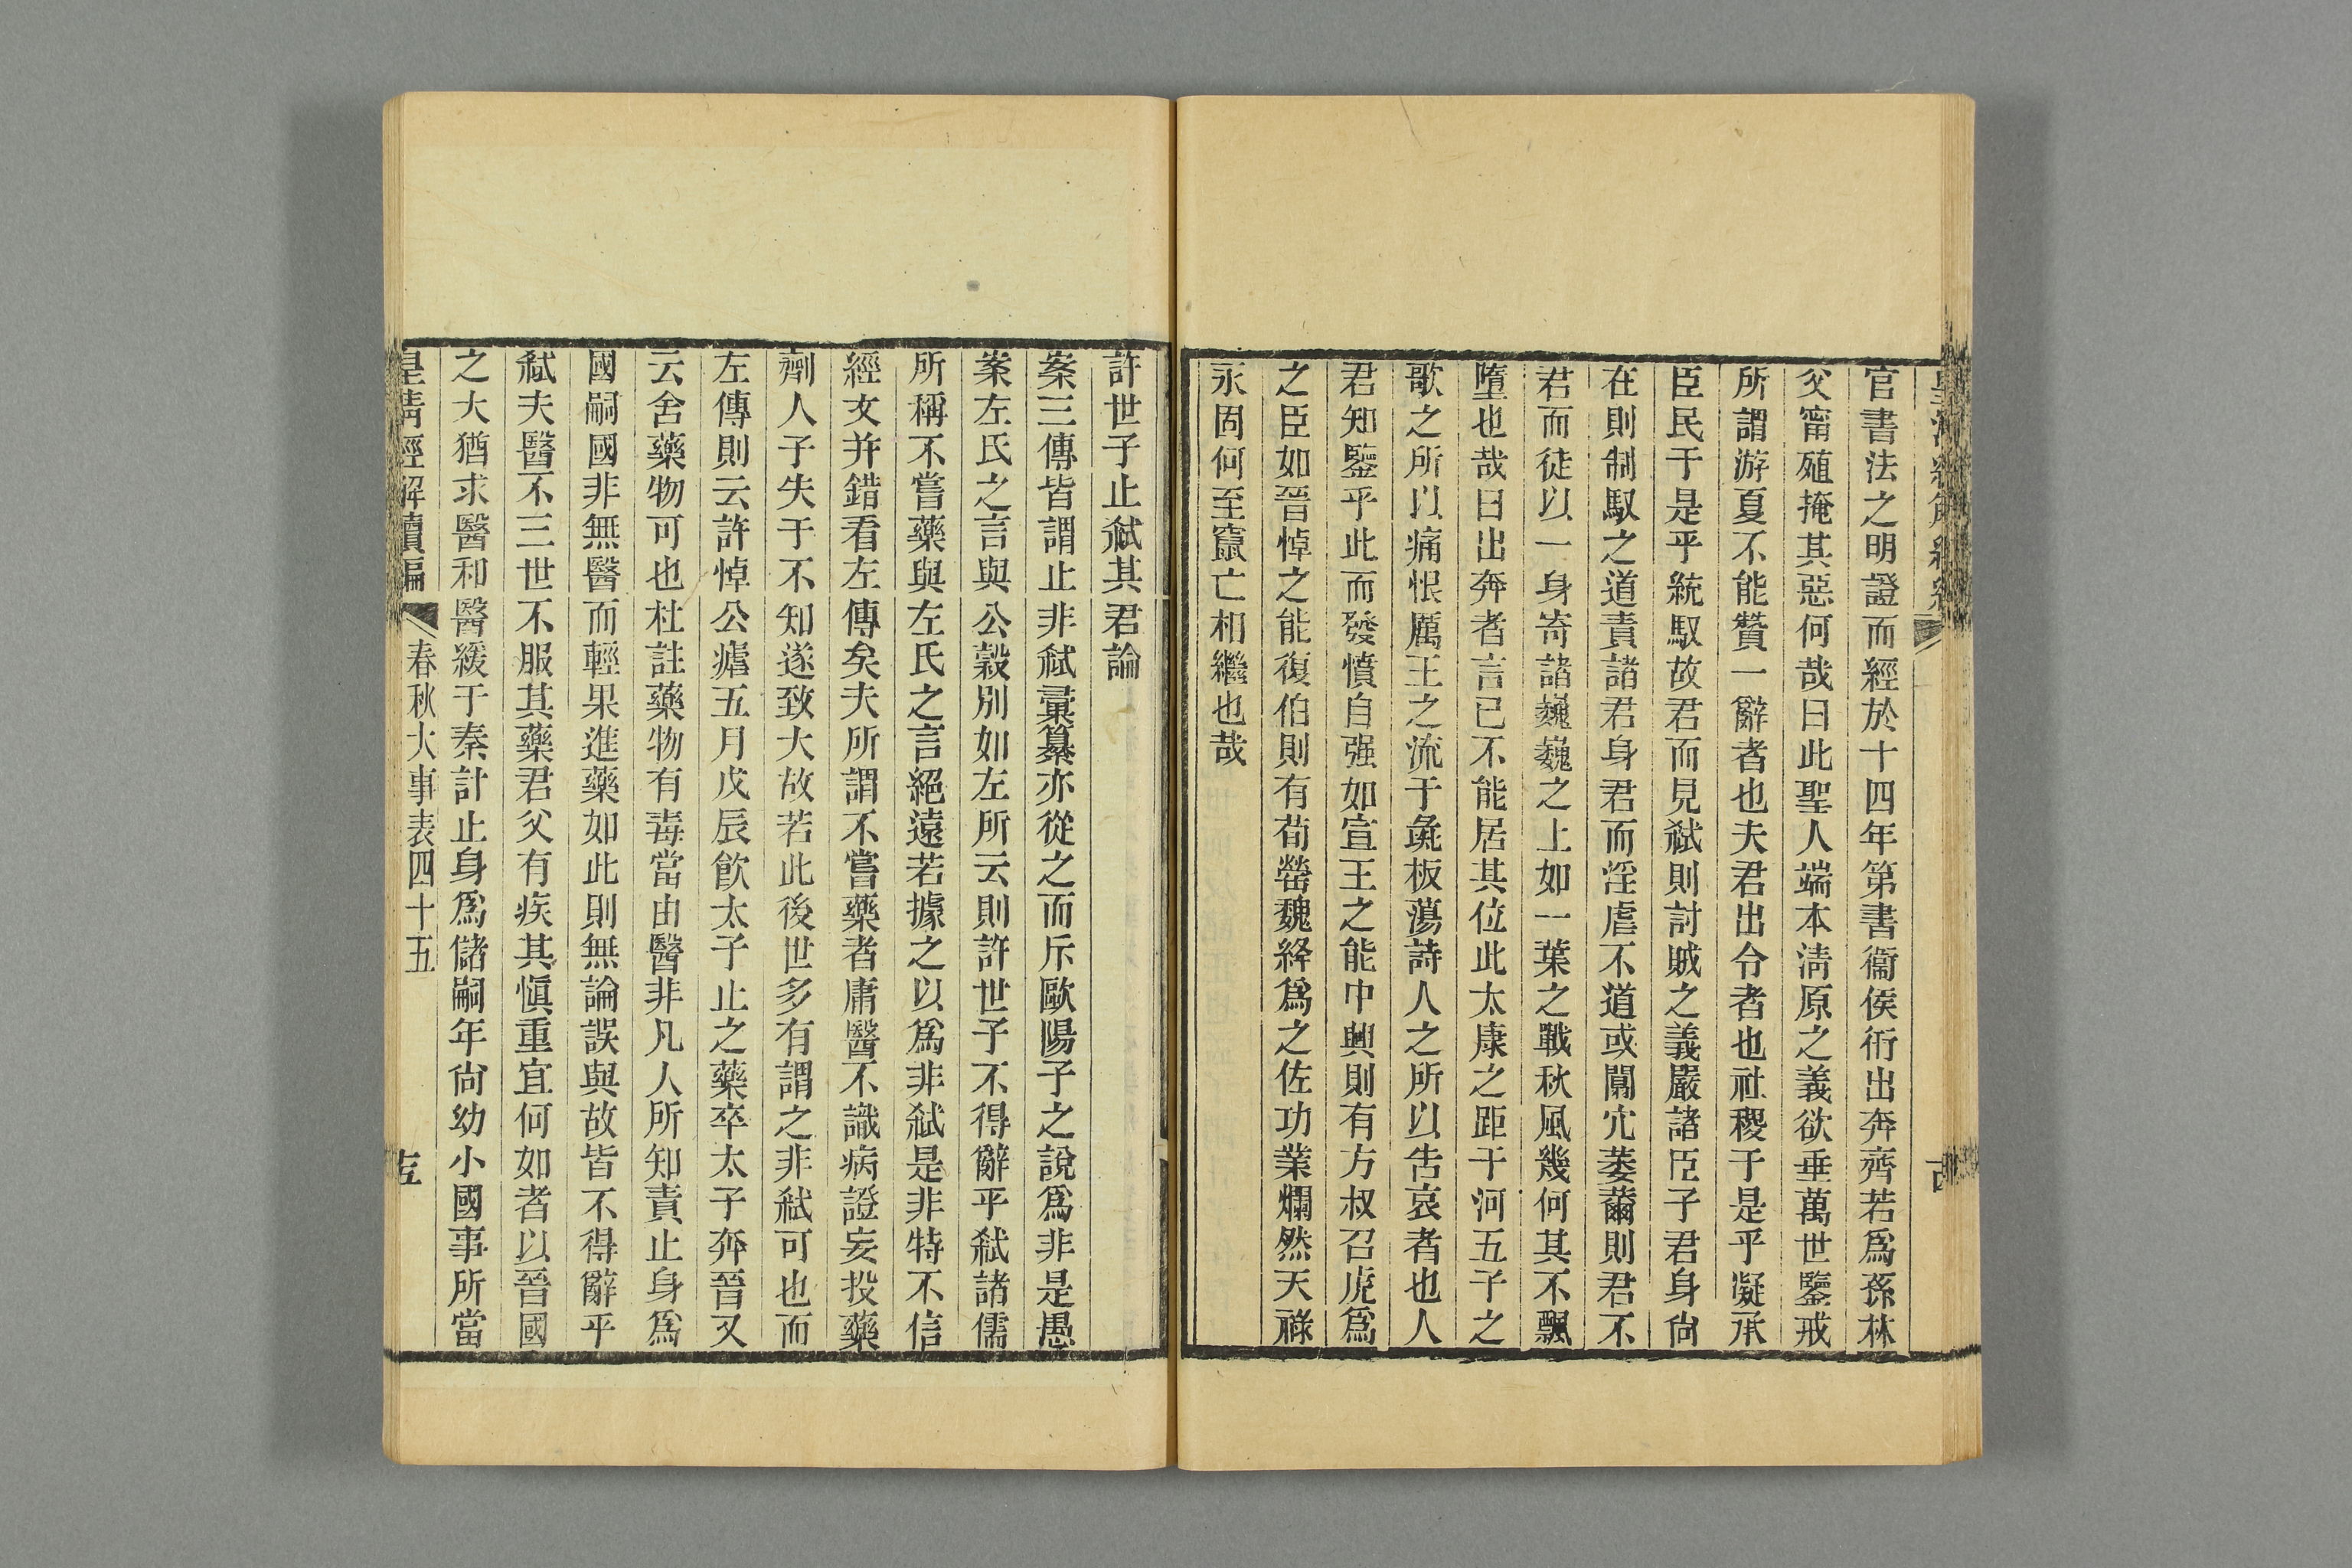 官書法之明證而經於十四年第書衞侯衎出奔齊若爲孫林
父甯殖掩其惡何哉曰此聖人端本淸原之義欲垂萬世鑒戒
所謂游夏不能贊一辭者也夫君出令者也社稷于是乎凝承
臣民于是乎統馭故君而見弑則討賊之義嚴諸臣子君身尙
在則制馭之道責諸君身君而淫虐不道或闒宂萎薾則君不
君而徒以一身寄諸巍巍之上如一葉之戰秋風幾何其不飄
墮也哉曰出奔者言已不能居其位此太康之距于河五子之
歌之所以痛恨厲王之流于彘板蕩詩人之所以告哀者也人
君知鑒乎此而發憤自强如宣王之能中興則有方叔召虎爲
之臣如晉悼之能復伯則有荀罃魏絳爲之佐功業爛然天祿
永固何至竄亡相繼也哉
許世子止弑其君論
案三傳皆謂止非弑彙纂亦從之而斥歐陽子之說爲非是愚
案左氏之言與公穀別如左所云則許世子不得辭乎弑諸儒
所稱不嘗藥與左氏之言絕遠若據之以爲非弑是非特不信
經文并錯看左傳矣夫所謂不嘗藥者庸醫不識病證妄投藥
劑人子失于不知遂致大故若此後世多有謂之非弑可也而
左傳則云許悼公瘧五月戊辰飮太子止之藥卒太子奔晉又
云舍藥物可也杜註藥物有毒當由醫非凡人所知責止身爲
國嗣國非無醫而輕果進藥如此則無論誤與故皆不得辭乎
弑夫醫不三世不服其藥君父有疾其愼重宜何如者以晉國
之大猶求醫和醫緩于秦計止身爲儲嗣年尙幼小國事所當
皇淸經解續編 春秋大事表四十五